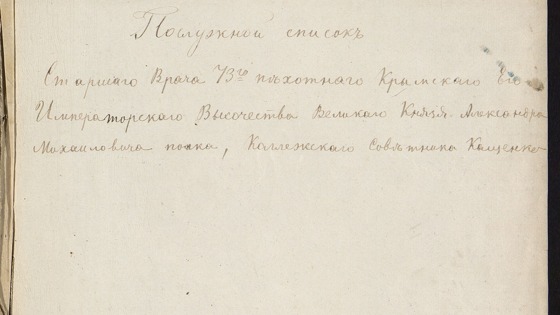 Послужной списокъ
Старшаго Врача 73го пѣхотнаго Крымскаго Его
Императорскаго Высочества Великаго Князя Александра
Михаиловича полка, Коллежскаго Совѣтника Кащенко